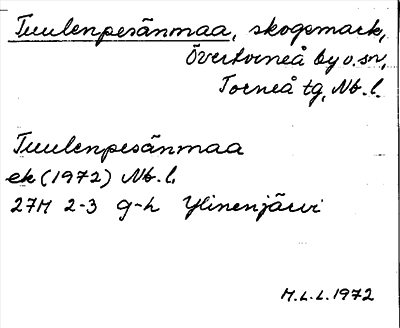 Tuulenpesänmaa, skogsmark,
Övertorneå by o. sn,
Torneå tg, Nb. l.
Tuulenpesänmaa
ek (1972) Nb. l.
27M 2-3 g-h Ylinenjärvi
M.L.L. 1972